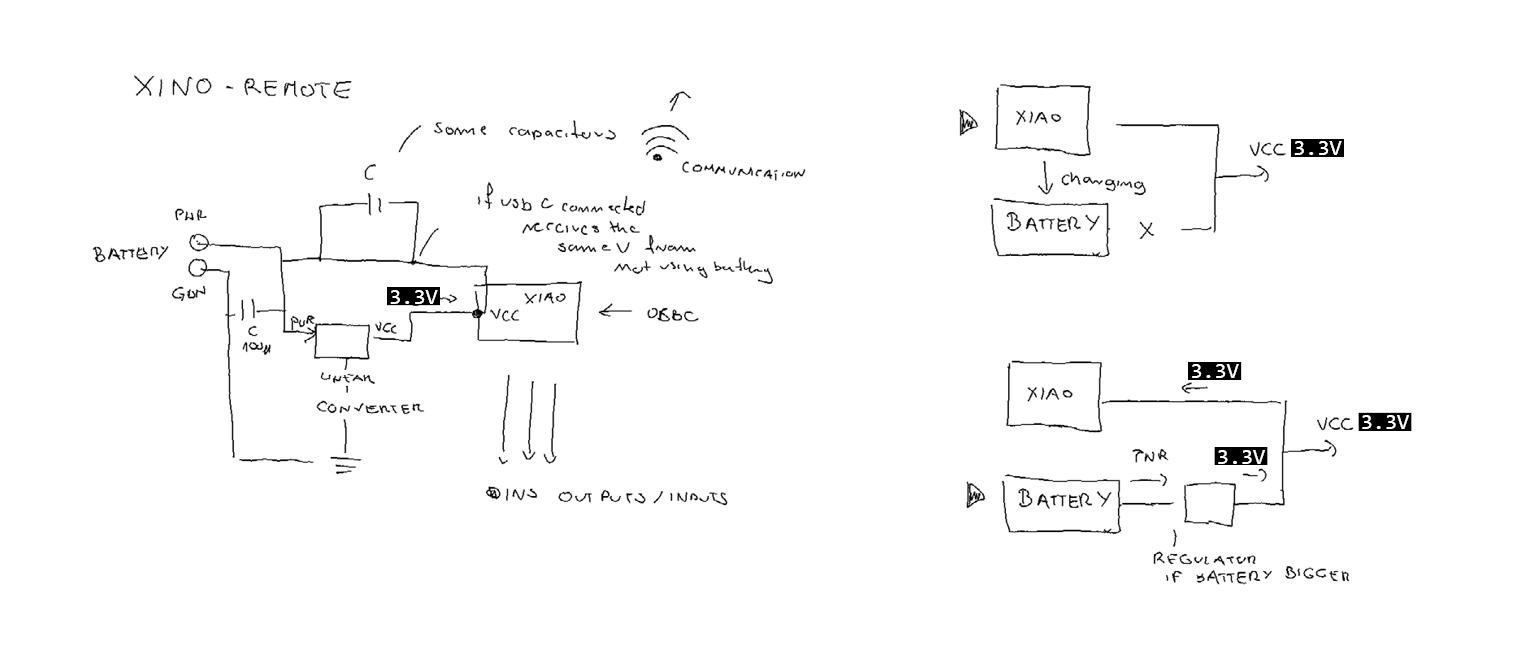 XINO - REMOTE
some capacitors
C
COMMUNICATION
if usb C connected
receives the
same V from
not using battery
PWR
BATTERY
GDN
C
100µ
PWR
VCC
3.3V
XIAO
VCC
LINEAR
CONVERTER
OUTPUTS / INPUTS
XIAO
VCC 3.3V
charging
BATTERY X
XIAO
3.3V
VCC 3.3V
PWR
3.3V
BATTERY
REGULATOR
IF BATTERY BIGGER